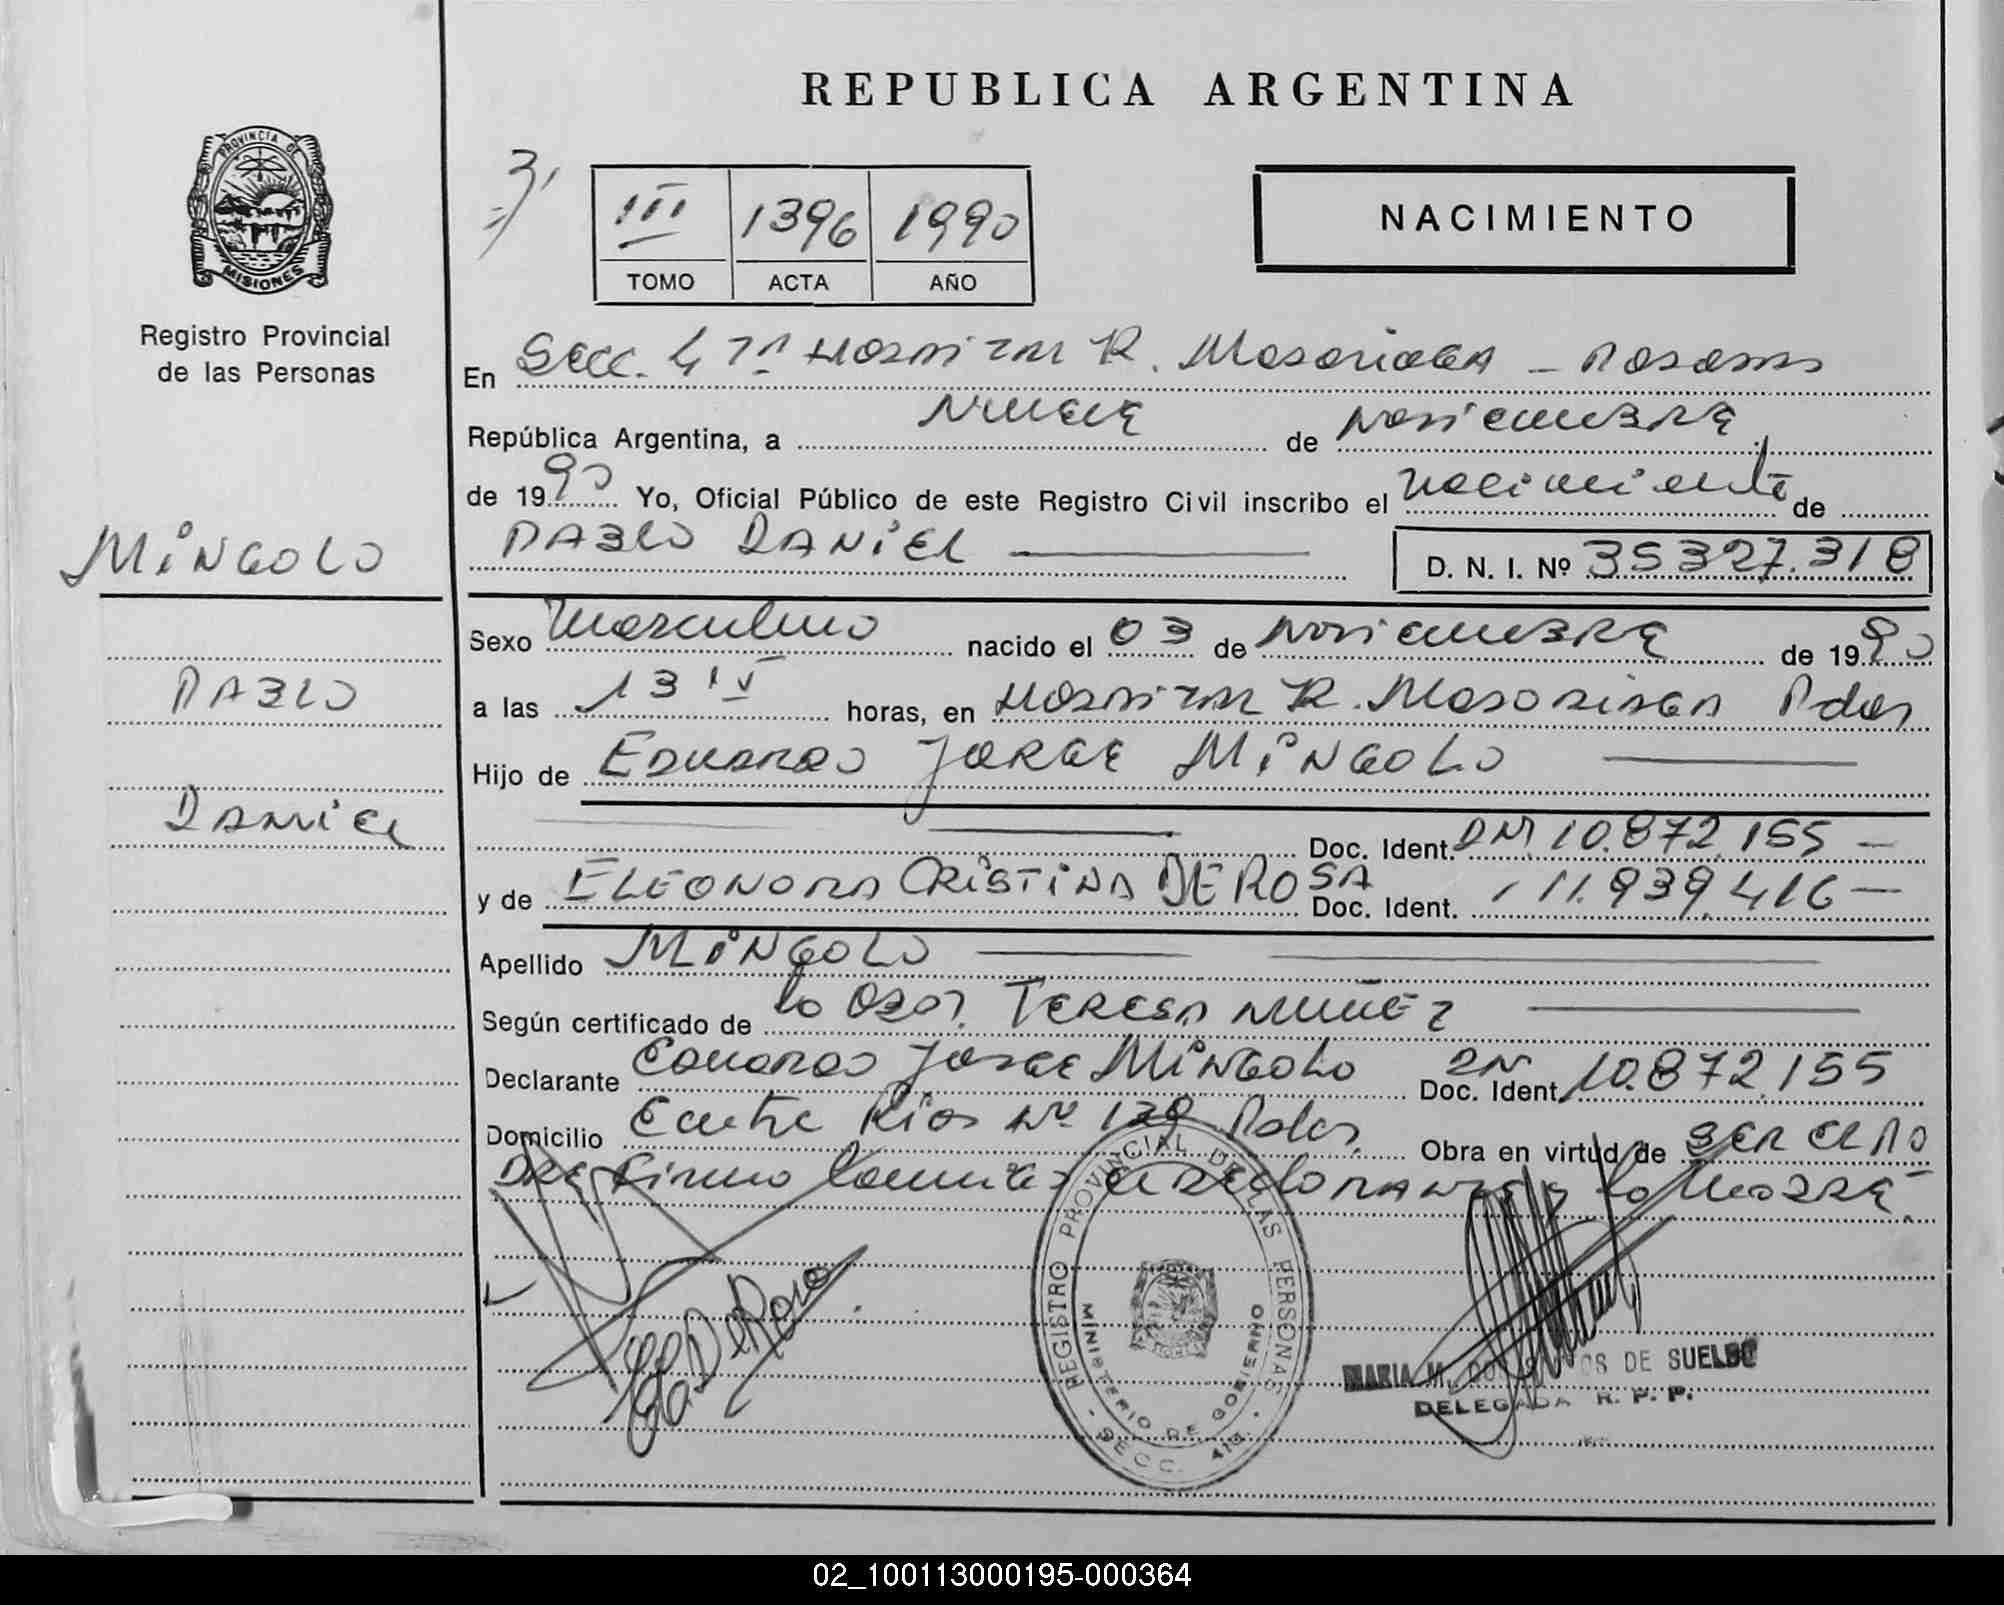 REPUBLICA ARGENTINA
PROVINCIA DE
MISIONES
Registro Provincial
de las Personas
III 1396 1990
TOMO ACTA AÑO
NACIMIENTO
En Secc. 4 Hospital R. Madariaga - Posadas
República Argentina, a nueve de noviembre
de 1990 Yo, Oficial Público de este Registro Civil inscribo el nacimiento de
PABLO DANIEL D. N. I. Nº 35327.318
MINGOLO
PABLO
DANIEL
Sexo Masculino nacido el 03 de noviembre de 1990
a las 13 horas, en Hospital R. Madariaga Pdas
Hijo de Eduardo Jorge Mingolo
Doc. Ident. DNI 10.872.155 -
y de ELEONORA CRISTINA DE ROSA Doc. Ident. 11.939.416 -
Apellido MINGOLO
Según certificado de la Obst. TERESA NUÑEZ
Declarante Eduardo Jorge Mingolo Doc. Ident. DN 10.872.155
Domicilio Entre Rios Nº 128 Pdas. Obra en virtud de SER EL PA
DRE Firma el declarante y la Madre.
E C De Rosa
REGISTRO PROVINCIAL DE LAS PERSONAS
MINISTERIO DE GOBIERNO
SECC. 4
MARIA M. DOS SANTOS DE SUELDO
DELEGADA R. P. P.
02_100113000195-000364